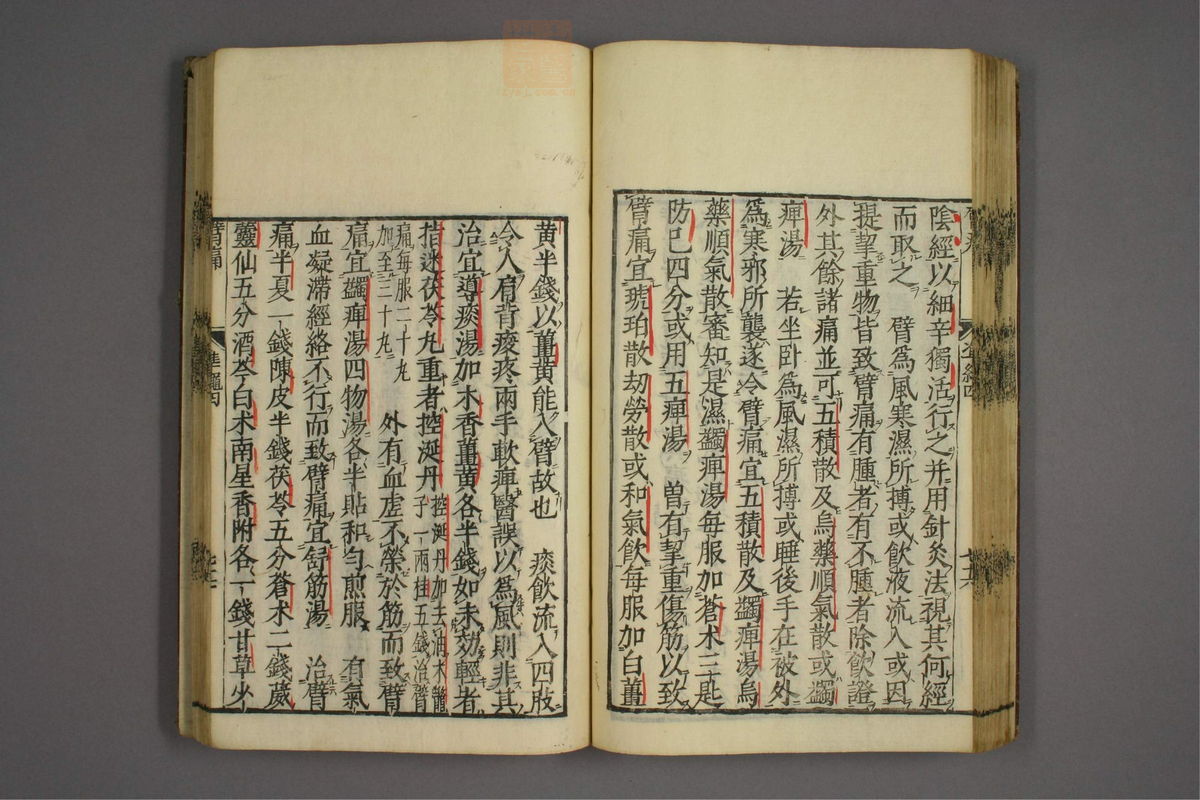 陰經以細辛獨活行之并用針灸法視其何經
而取之　臂為風寒濕所搏或飲液流入或因
提挈重物皆致臂痛有腫者有不腫者除飲證
外其餘諸痛並可五積散及烏藥順氣散或蠲
痺湯　若坐臥為風濕所搏或睡後手在被外
為寒邪所襲遂令臂痛宜五積散及蠲痺湯烏
藥順氣散審知是濕蠲痺湯每服加蒼术三匙
防已四分或用五痺湯　曽有挈重傷筋以致
臂痛宜琥珀散劫勞散或和氣飲每服加白薑
黄半錢以薑黄能入臂故也　痰飲流入四肢
令人肩背痠疼兩手軟痺醫誤以為風則非其
治宜導痰湯加木香薑黄各半錢如未効輕者
指迷茯苓丸重者控涎丹控涎丹加去油木鱉
子一兩桂五錢治臂
痛每服二十丸
加至三十丸　外有血虗不榮於筋而致臂
痛宜蠲痺湯四物湯各半貼和勻煎服　有氣
血凝滯經絡不行而致臂痛宜舒筋湯　治臂
痛半夏一錢陳皮半錢茯苓五分蒼术二錢葳
靈仙五分酒芩白术南星香附各一錢甘草少
臂痛
准繩四